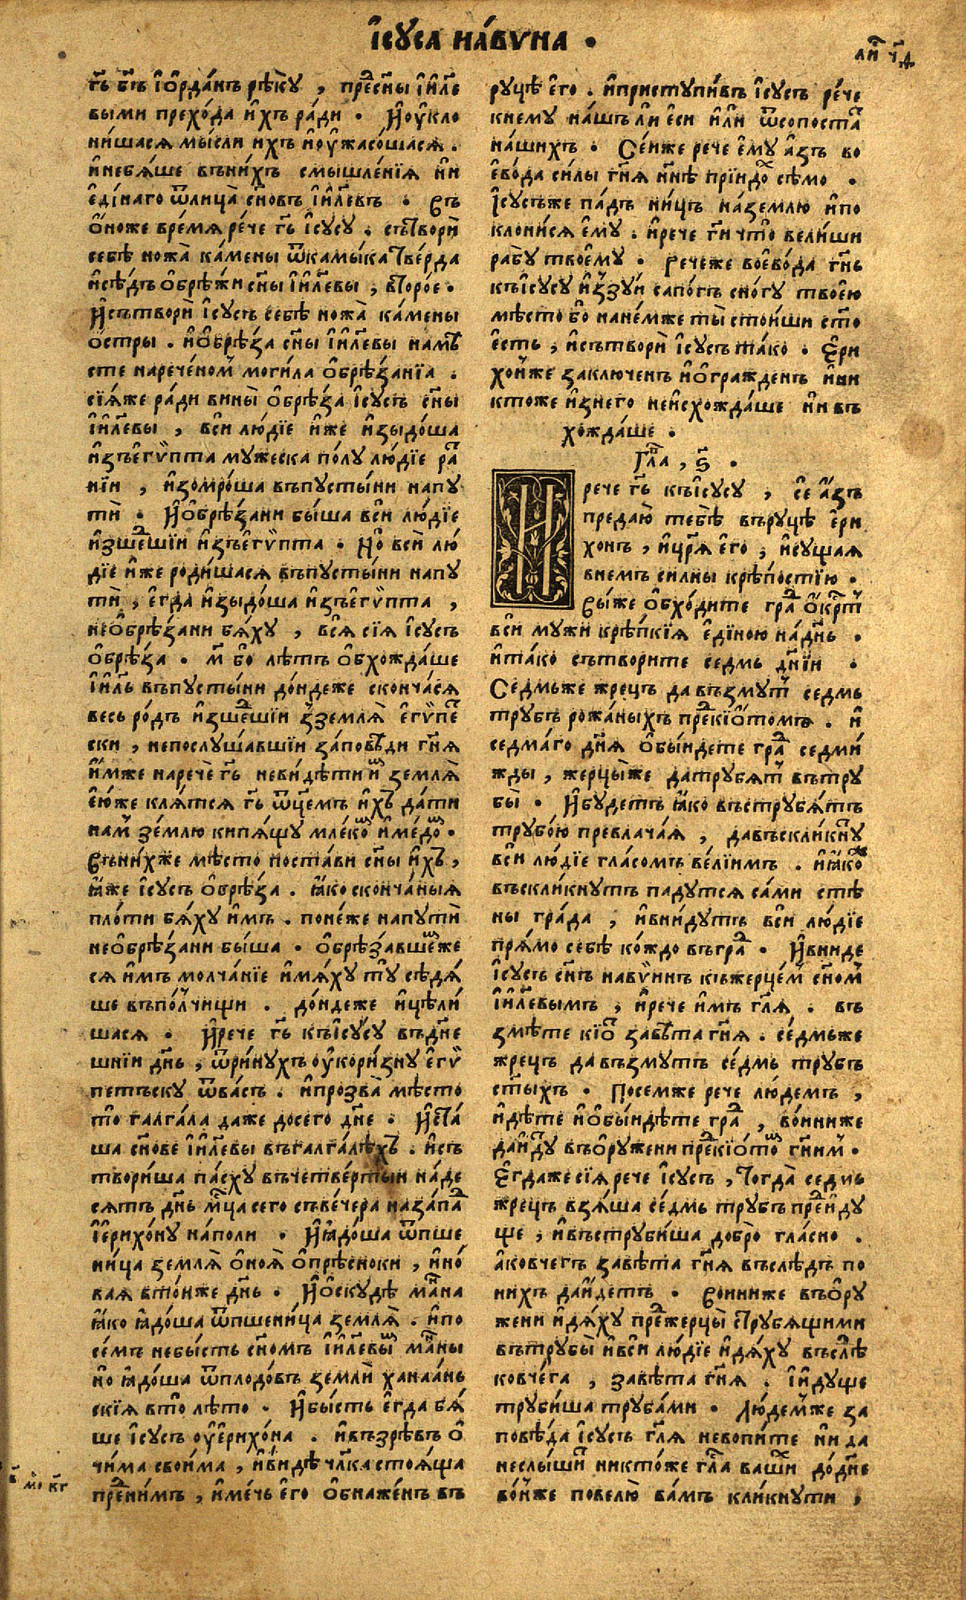 і҆сꙋса на́вѵна •
ли҇ ч҃д
гь҃ бг҃ъ і҆ѻ҆рда́нъ рѣ́кꙋ , пре́сн҃ы і҆и҃ле
выми прехо́да и҆́хъ ра́ди • И҆ ѹ҆кло
ни́шася мы́сли ихъ и҆ ѹ҆жасо́шася .
и҆небѧ́ше въни́хъ смышле́нїѧ ни
еді́наго ѿлица̀ сн҃овъ і҆и҃левъ • Въ
ѻ҆́ноже вре́мѧ ре́че гь҃ і҆сꙋсꙋ . сътворѝ
себѣ̀ ножа̀ ка́мены ѿка́мыка тве́рда
и҆сѣ́дъ ѻ҆брѣ́жи сн҃ы і҆и҃левы , второ́е •
И҆сътворѝ і҆сꙋсъ себѣ̀ ножа̀ ка́мены
ѻ҆́стры . и҆ѻ҆брѣ́за сн҃ы і҆и҃левы намѣ
сте нарече́номъ моги́ла ѻ҆брѣ́занїа .
сїѧ́же ра́ди вины̀ ѻ҆брѣ́за і҆сꙋсъ сн҃ы
і҆и҃левы , вси лю́дїе и҆́же и҆зыдо́ша
и҆зъегѵ̀пта мꙋ́жеска по́лꙋ лю́дїе ра́т
нїи , и҆зомро́ша въпꙋсты́ни напꙋ
тѝ • И҆ѻ҆брѣ́зани бы́ша вси лю́дїе
и҆зше́дшїи и҆зъегѵ̀пта • Но̀ всѝ лю́
дїе и҆́же роди́шася въпꙋсты́ни напꙋ
тѝ , е҆гда̀ и҆зыдо́ша и҆зъегѵ̀пта ,
неѻ҆брѣ́зани бѧ́хꙋ , всѧ̀ сїѧ̀ і҆сꙋсъ
ѻ҆брѣ́за • м҃ бо лѣ́тъ ѻ҆бхожда́ше
і҆и҃ль въпꙋсты́ни до́ндеже сконча́ся
весь ро́дъ и҆зше́дшїи и҆зземлѧ̀ е҆гѵ̀пет
ски , непослꙋ́шавшїи за́повѣди гн҃ѧ
и҆́мже наречѐ гь҃ неви́дѣти и҆́мъ землѧ̀
е҆ю́же клѧ́тся гь҃ ѿц҃емъ и҆́хъ да́ти
на́мъ зе́млю кипѧ́щꙋ мле́комъ и҆ме́домъ •
Въни́хже мѣ́сто поста́ви сн҃ы и҆́хъ ,
ꙗ҆́же і҆сꙋсъ ѻ҆брѣ́за . ꙗ҆́ко сконча́ныѧ
пло́ти бѧ́хꙋ и҆́мъ . поне́же напꙋтѝ
неѻ҆брѣ́зани бы́ша • ѻ҆брѣза́вшемже
ся и҆́мъ молча́нїе и҆мѧ́хꙋ тꙋ̀ сѣдѧ́
ше въпо́лчищи . до́ндеже и҆цѣли́
шася • И҆рече гь҃ къі҆сꙋсꙋ въдн҃е
шнїи дн҃ь , ѿри́нꙋхъ ѹ҆кори́знꙋ е҆гѵ̀
петъскꙋ ѿва́съ . и҆прозва̀ мѣ́сто
то̀ галга́ла даже досего̀ дн҃е • И҆ста́
ша сн҃ове і҆и҃левы въгалга́лѣхъ . и҆съ
твори́ша па́схꙋ въчетве́ртыи на́де
сѧтъ дн҃ь мц҃а сего съве́чера наза́падъ
і҆ери́хо́нꙋ напо́ли • И҆ꙗ҆до́ша ѿпше
ни́ца землѧ̀ ѻ҆́ноѧ ѻ҆прѣ́сноки , и҆но́
ваѧ вто́нже дн҃ь • И҆ѻ҆скꙋдѣ̀ ма́нна
ꙗ҆́ко ꙗ҆до́ша ѿпшени́ца землѧ̀ . и҆по
се́мъ небы́сть сн҃омъ і҆и҃левымъ ма́нны
но̀ ꙗ҆до́ша ѿплодо́въ землѝ ханаа́нь
скїѧ вто̀ лѣ́то • И҆бы́сть е҆гда бѧ́
ше і҆сꙋсъ ѹ҆е҆рихо́на . и҆възрѣ́въ ѻ҆
чи́ма свои́ма , и҆ви́дѣ чл҃ка стоѧ́ща
пред ни́мъ , и҆ме́чь е҆го̀ ѻ҆бнаже́нъ въ
мо҇ кг҃
рꙋцѣ̀ е҆го . и҆пристꙋпи́въ і҆сꙋсъ ре́че
кнемꙋ̀ на́шъ ли е҆си и҆лѝ ѿсопоста́т
на́шихъ • Се́иже рече е҆мꙋ̀ а҆́зъ во
е҆во́да си́лы гн҃ѧ нн҃ѣ прїидо́хъ сѣ́мо •
І҆сꙋсъже па́дъ ни́цъ на́землю и҆по
клони́ся е҆мꙋ̀ . и҆рече гн҃и что̀ вели́ши
рабꙋ̀ твое́мꙋ • Речеже воево́да гн҃ь
къі҆сꙋсꙋ и҆зꙋ́и сапо́гъ сно́гꙋ твое́ю
мѣ́сто бо нане́мже ты̀ стои́ши ст҃о
е҆сть , и҆сътворѝ і҆сꙋсъ та́ко • Е҆ри
хо́нже заключе́нъ и҆ѻ҆гражде́нъ и҆ни
кто́же и҆знего̀ неи҆схожда́ше ни въ
хожда́ше •
Гла҃ , ѕ҃ •
И҆ рече гь҃ къі҆сꙋсꙋ , се а҆́зъ
предаю̀ тебѣ̀ върꙋцѣ̀ е҆ри
хо́нъ , и҆цр҃ѧ е҆го̀ , и҆сꙋ́щаѧ
внемъ си́лны крѣ́постїю •
Вы́же ѻ҆бхо́дите гра́дъ ѻ҆́крⷭ҇тъ
всѝ мꙋ́жи крѣ́пкїѧ е҆ди́ною на́дн҃ь •
и҆та́ко сътвори́те се́дмь дн҃їи •
Седмьже жре́цъ да възмꙋ́тъ се́дмь
трꙋ́бъ рожа́ныхъ предкїѡ́томъ . и҆
седма́го дн҃ѧ ѻ҆бы́идете гра́дъ седми́
жды , жерцы́же датрꙋ́бѧтъ вътрꙋ
бы̀ • И҆бꙋ́детъ ꙗ҆́ко въстрꙋ́бѧтъ
трꙋбо́ю превлача́ѧ , давъскли́кнꙋтъ
всѝ лю́дїе гла́сомъ ве́лїимъ . и҆ꙗ҆́ко
въскли́кнꙋтъ падꙋ́тся са́ми стѣ
ны̀ гра́да , и҆вни́дꙋтъ всѝ лю́дїе
прѧ́мо себѣ̀ ко́ждо въгра́дъ • И҆вниде
і҆сꙋсъ сн҃ъ навѵ̀инъ къжерце́мъ сн҃омъ
і҆и҃левымъ , и҆рече и҆́мъ гл҃ѧ . въ
змѣ́те кїѡ́тъ завѣ́та гн҃ѧ . се́дмьже
жре́цъ да възмꙋ́тъ се́дмь трꙋ́бъ
ст҃ыхъ • Посе́мже рече лю́демъ ,
и҆дѣ́те и҆ѻ҆бы́идѣте гра́дъ , во́иниже
даи҆́дꙋтъ въѻ҆рꙋ́жени предкїѡ́томъ гн҃имъ •
Е҆гда́же сїѧ̀ рече і҆сꙋсъ , тогда̀ се́дмь
жре́цъ взѧ́ша се́дмь трꙋ́бъ пред и҆́дꙋ
ще , и҆въстрꙋби́ша добро̀ гла́сно .
а҆ковче́гъ завѣ́та гн҃ѧ въслѣ́дъ по
ни́хъ даи҆́детъ • Во́иниже въѻ҆рꙋ
жени и҆дѧ́хꙋ пред жерцы̀ стрꙋбѧ́щими
вътрꙋбы̀ и҆всѝ лю́дїе и҆дѧ́хꙋ въслѣ́дъ
ковче́га , завѣ́та гн҃ѧ . і҆идꙋ́ще
трꙋби́ша трꙋба́ми • Лю́демже за
повѣ́да і҆сꙋсъ гл҃ѧ невопі́ите ни да
неслы́шитъ никто́же гла́са ва́шихъ до́дн҃е
во́ньже повелю̀ ва́мъ кли́кнꙋти ,